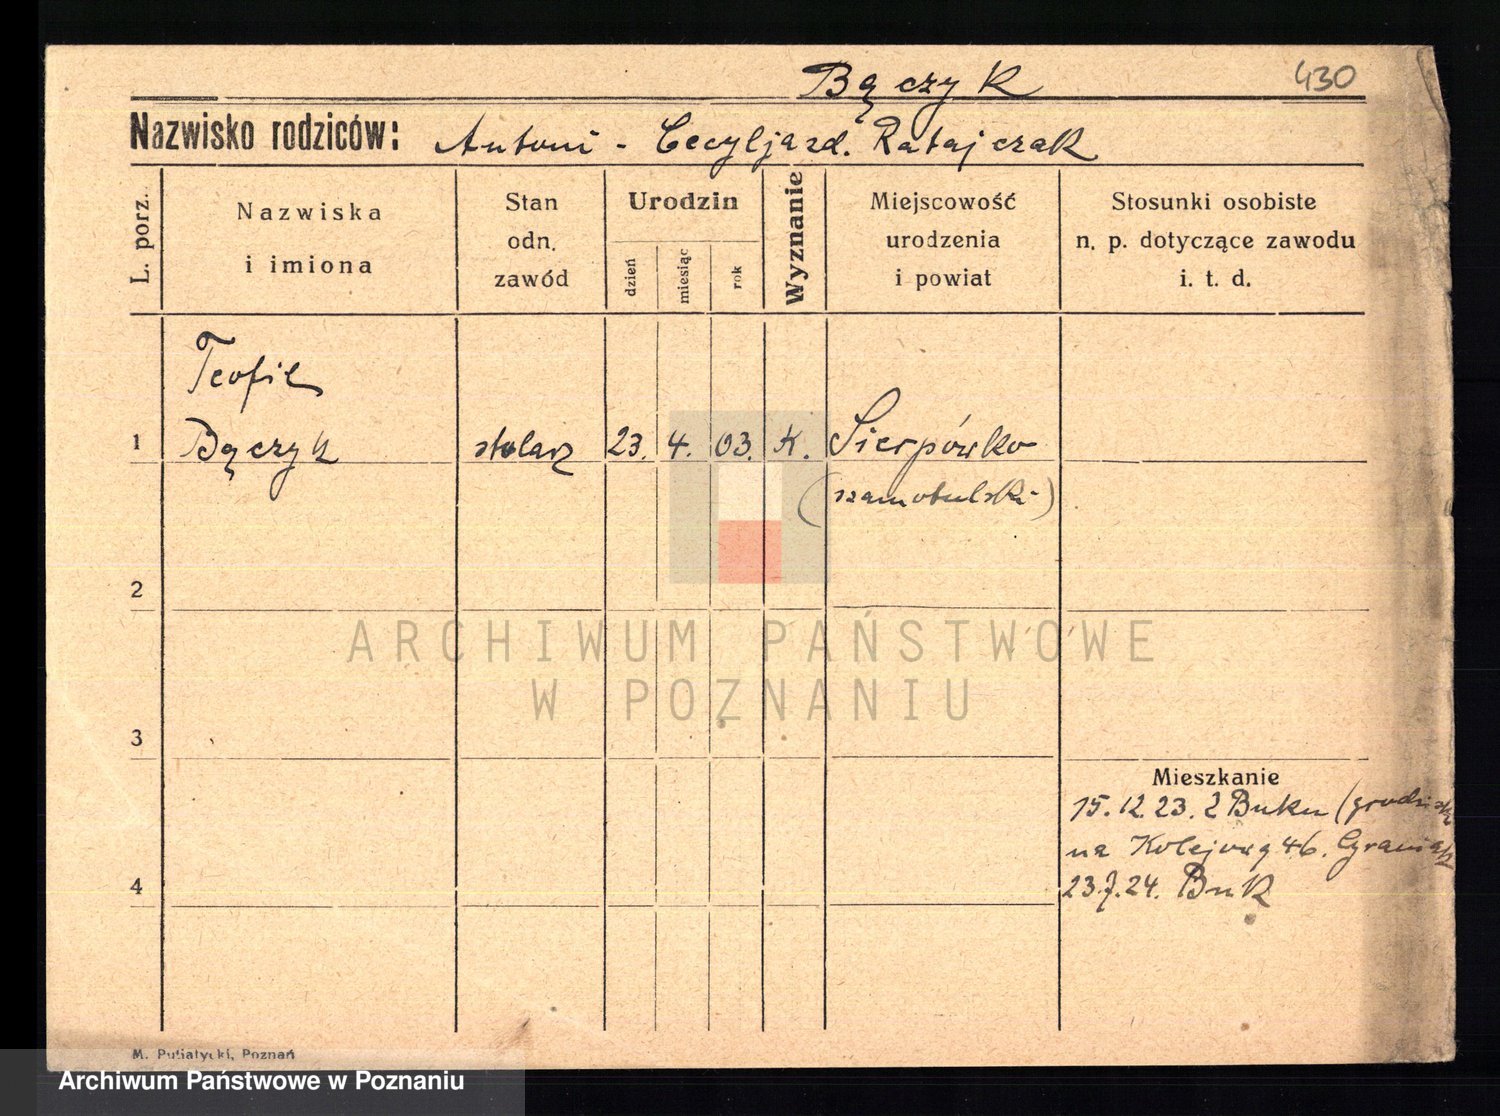 Bączyk 430
Nazwisko rodziców: Antoni - Cecylja zd. Ratajczak
L. porz.
Nazwiska
i imiona
Stan
odn.
zawód
Urodzin
dzień
miesiąc
rok
Wyznanie
Miejscowość
urodzenia
i powiat
Stosunki osobiste
n. p. dotyczące zawodu
i. t. d.
Teofil
1 Bączyk stolarz 23. 4. 03. K. Sierpówko
(szamotulski)
2
ARCHIWUM PAŃSTWOWE
W POZNANIU
3
Mieszkanie
15.12.23. z Buku (grodzisk
na Kolejową 46.
4 23.7.24. Buk
M. Putiatycki, Poznań
Archiwum Państwowe w Poznaniu